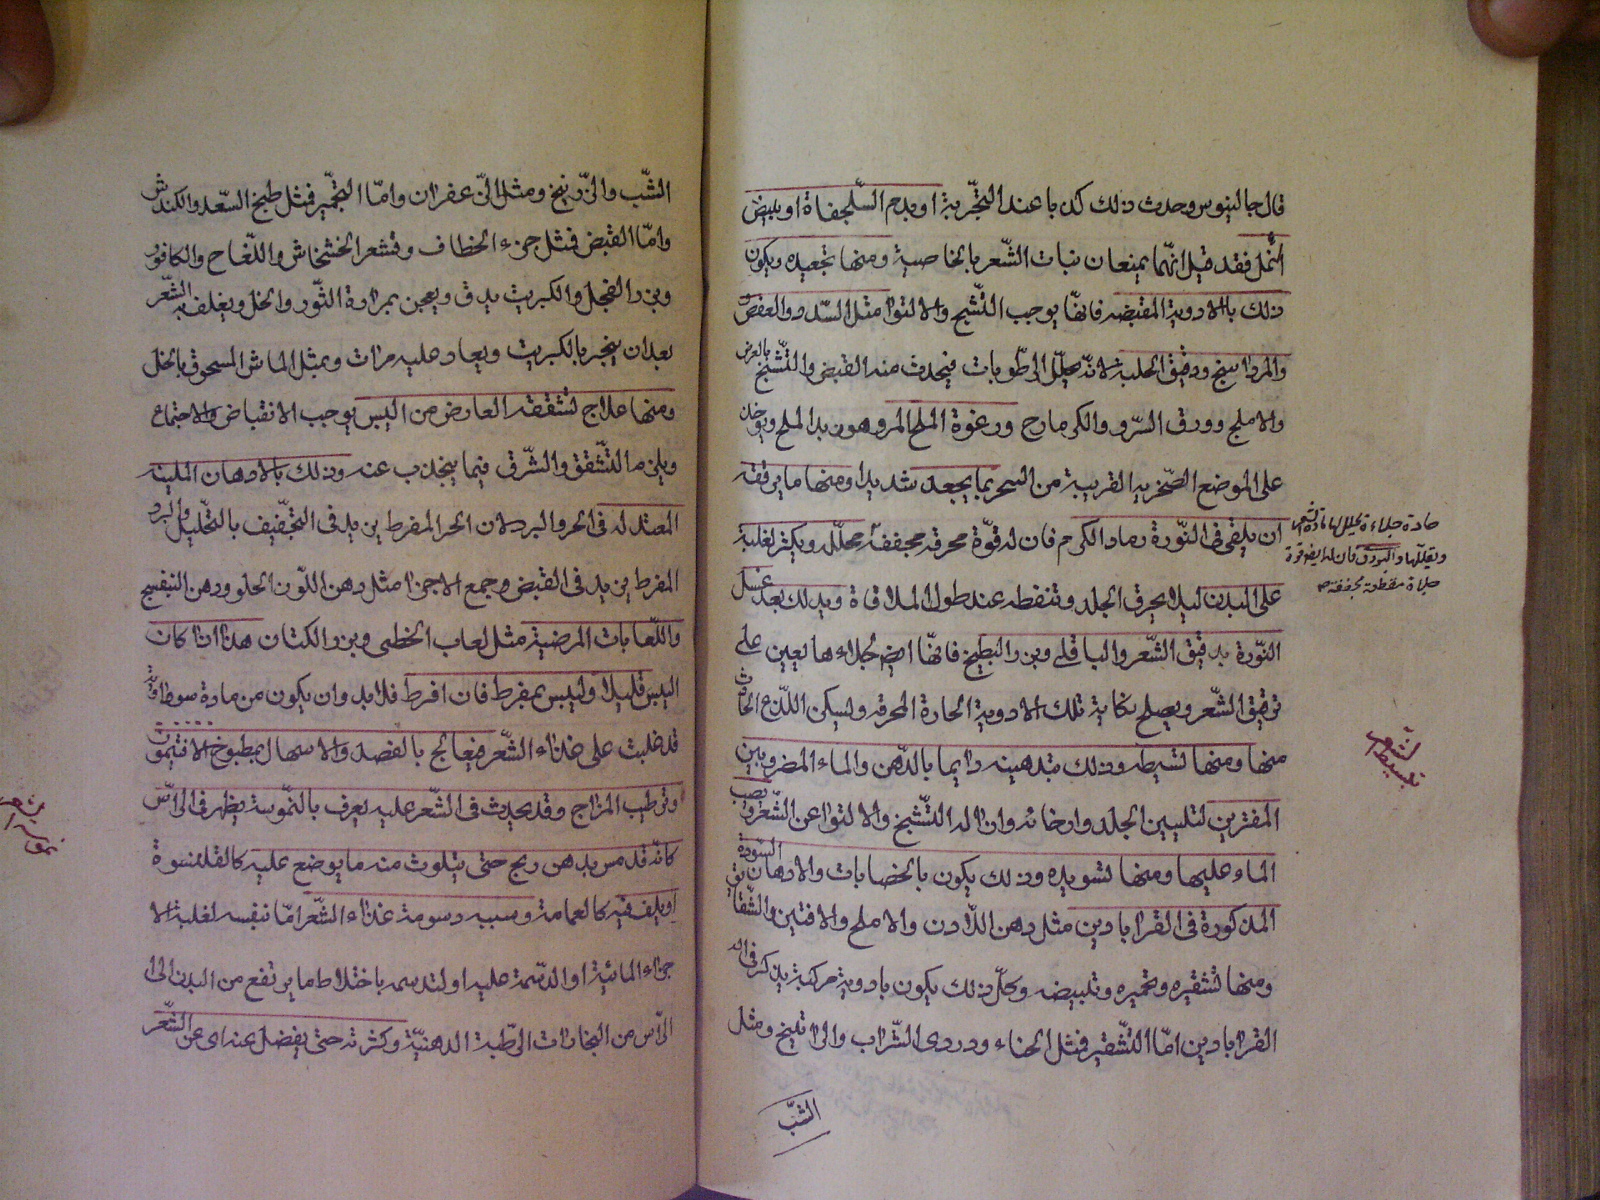 قال جالينوس وحدث ذلك كذبا عند التجربة او بدم السلحفاة او بيض
النمل فقد قيل انهما يمنعان نبات الشعر بالخاصية ومنها تجعيده ويكون
ذلك بالادوية المقبضه فانها يوجب التشنج والالتوا مثل السدر والعفص
والمرداسنج ودقيق الحلبة لانه يحلل الرطوبات فيحدث منه القبض والتشنج بالعرض
والاملج وورق السرو والكزمازج ورغوة الملح المر وهو زبد الملح ويوخذ
على المواضع الصخريه القريبة من البحر بما يجعد شديدا ومنها ما يرققه
ان يلقى فى النورة رماد الكرم فان له قوة محرقه مجففة محللة ويكثر لغلبة
على البدن ليلا يحرق الجلد وتنفطه عند طول الملاقاة ويدلك بعد غسل
النورة بدقيق الشعير والباقلى وبزر البطيخ فانها ايضا جلاءها يعين على
ترقيق الشعر ويصلح نكاية تلك الادوية الحارة المحرقه ولتسكن اللذع الحادث
منها ومنها تسبيطه وذلك بتدهينه دايما بالدهن والماء المضروبين
المفترين لتليين الجلد وارخائه وازالة التشنج والالتوا عن الشعر ويصب
الماء عليها ومنها تسويده وذلك يكون بالخضابات والادهان المسودة
المذكورة فى القرابادين مثل دهن اللادن والاملج والافتين والشقايق
ومنها تشقيره وتحميره وتبييضه وكل ذلك يكون بادوية مركبة يذكر فى
القرابادين اما التشقير فمثل الحناء ودردى الشراب والراتينج ومثل
الشب
حادة جلاءة يحلل مادة الشعر
ويقللها والبورق فان له ايضا قوة
جلاة مقطعة مجففة صح
تسبيط الشعر
الشب والزرنيخ ومثل الزعفران واما التحمير فمثل طبخ السعد والكندش
واما القبض فمثل خرء الخطاف وقشر الخشخاش واللفاح والكافور
وبزر الفجل والكبريت يدق ويعجن بمرارة الثور والخل ويغلف به الشعر
بعد ان يبخر بالكبريت ويعاد عليه مرات وبمثل الماش المسحوق بالخل
ومنها علاج تشققه العارض من اليبس يوجب الانقباض والاجتماع
ويلزمه التشقق والتفرق فيما ينجذب عنه وذلك بالادهان الملينة
المعتدله فى الحر والبرد لان الحر المفرط يزيد فى التجفيف بالتحليل والبرد
المفرط يزيد فى القبض وجمع الاجزا مثل دهن اللوز الحلو ودهن البنفسج
واللعابات المرضية مثل لعاب الخطمى وبزر الكتان هذا اذا كان
اليبس قليلا وليس بمفرط فان افرط فلابد وان يكون من مادة سوداوية
قد غلبت على غذاء الشعر فيعالج بالفصد والاسهال بمطبوخ الافتيمون
وترطيب المزاج وقد يحدث فى الشعر علية يعرف بالنموسة يظهر فى الراس
كانه قد مس بدهن ريح حتى يتلوث منه ما يوضع عليه كالقلنسوة
او يلف فيه كالعمامة وسببه دسومة غذاء الشعر اما بنفسه لغلبة الا
جزاء المائية او الدسمة عليه او لتدسمه باختلاط ما يرتفع من البدن الى
الراس من البخارات الرطبة الدهنية وكثرته حتى يفضل عن الشعر